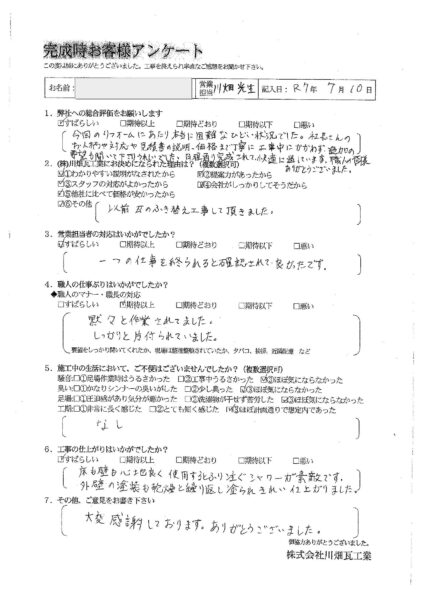 完成時お客様アンケート
この度は誠にありがとうございました。工事を終えられ率直なご感想をお聞かせ下さい。
お名前: 営業担当 川畑 先生 記入日: R7年 7月10日
1. 弊社への総合評価をお願いします
☑すばらしい □期待以上 □期待どおり □期待以下 □悪い
今回のリフォームにあたり本当に困難なひどい状況でした。社長さんの
お人柄や対応や見積書の説明・価格まで丁寧に工事中にかかわらず、追加の
要望も聞いて下りうれしいでした。日程通り完成されて快適に過しています。職人の皆様
ありがとうございました。
2. (株)川畑瓦工業にお決めになられた理由は?(複数選択可)
☑①わかりやすい説明がなされたから ☑②提案力があったから
☑③スタッフの対応がよかったから ☑④会社がしっかりしてそうだから
☑⑤他社に比べて価格が安かったから
☑⑥その他 以前瓦のふき替え工事して頂きました。
3. 営業担当者の対応はいかがでしたか?
☑すばらしい □期待以上 □期待どおり □期待以下 □悪い
一つの仕事を終られると確認されて良かったです。
4. 職人の仕事ぶりはいかがでしたか?
◆職人のマナー・職長の対応
□すばらしい ☑期待以上 □期待どおり □期待以下 □悪い
黙々と作業されてました。
しっかりと片付られていました。
5. 施工中の生活において、ご不便はございませんでしたか?(複数選択可)
騒音:□①足場作業時はうるさかった □②工事中うるさかった ☑③ほぼ気にならなかった
臭い:□①かなりシンナーの臭いがした □②少し臭った ☑③ほぼ気にならなかった
足場:□①圧迫感があり気分が悪かった □②洗濯物が干せず苦労した ☑③ほぼ気にならなかった
工期:□①非常に長く感じた □②とても短く感じた ☑③ほぼ計画通りで想定内であった
なし
6. 工事の仕上がりはいかがでしたか?
☑すばらしい □期待以上 □期待どおり □期待以下 □悪い
床も壁も心地良く使用するとふり注ぐシャワーが素敵です。
外壁の塗装も乾燥と繰り返し塗られきれい仕上がりました。
7. その他、ご意見をお書き下さい
大変感謝しております。ありがとうございました。
御協力ありがとうございました。
株式会社川畑瓦工業